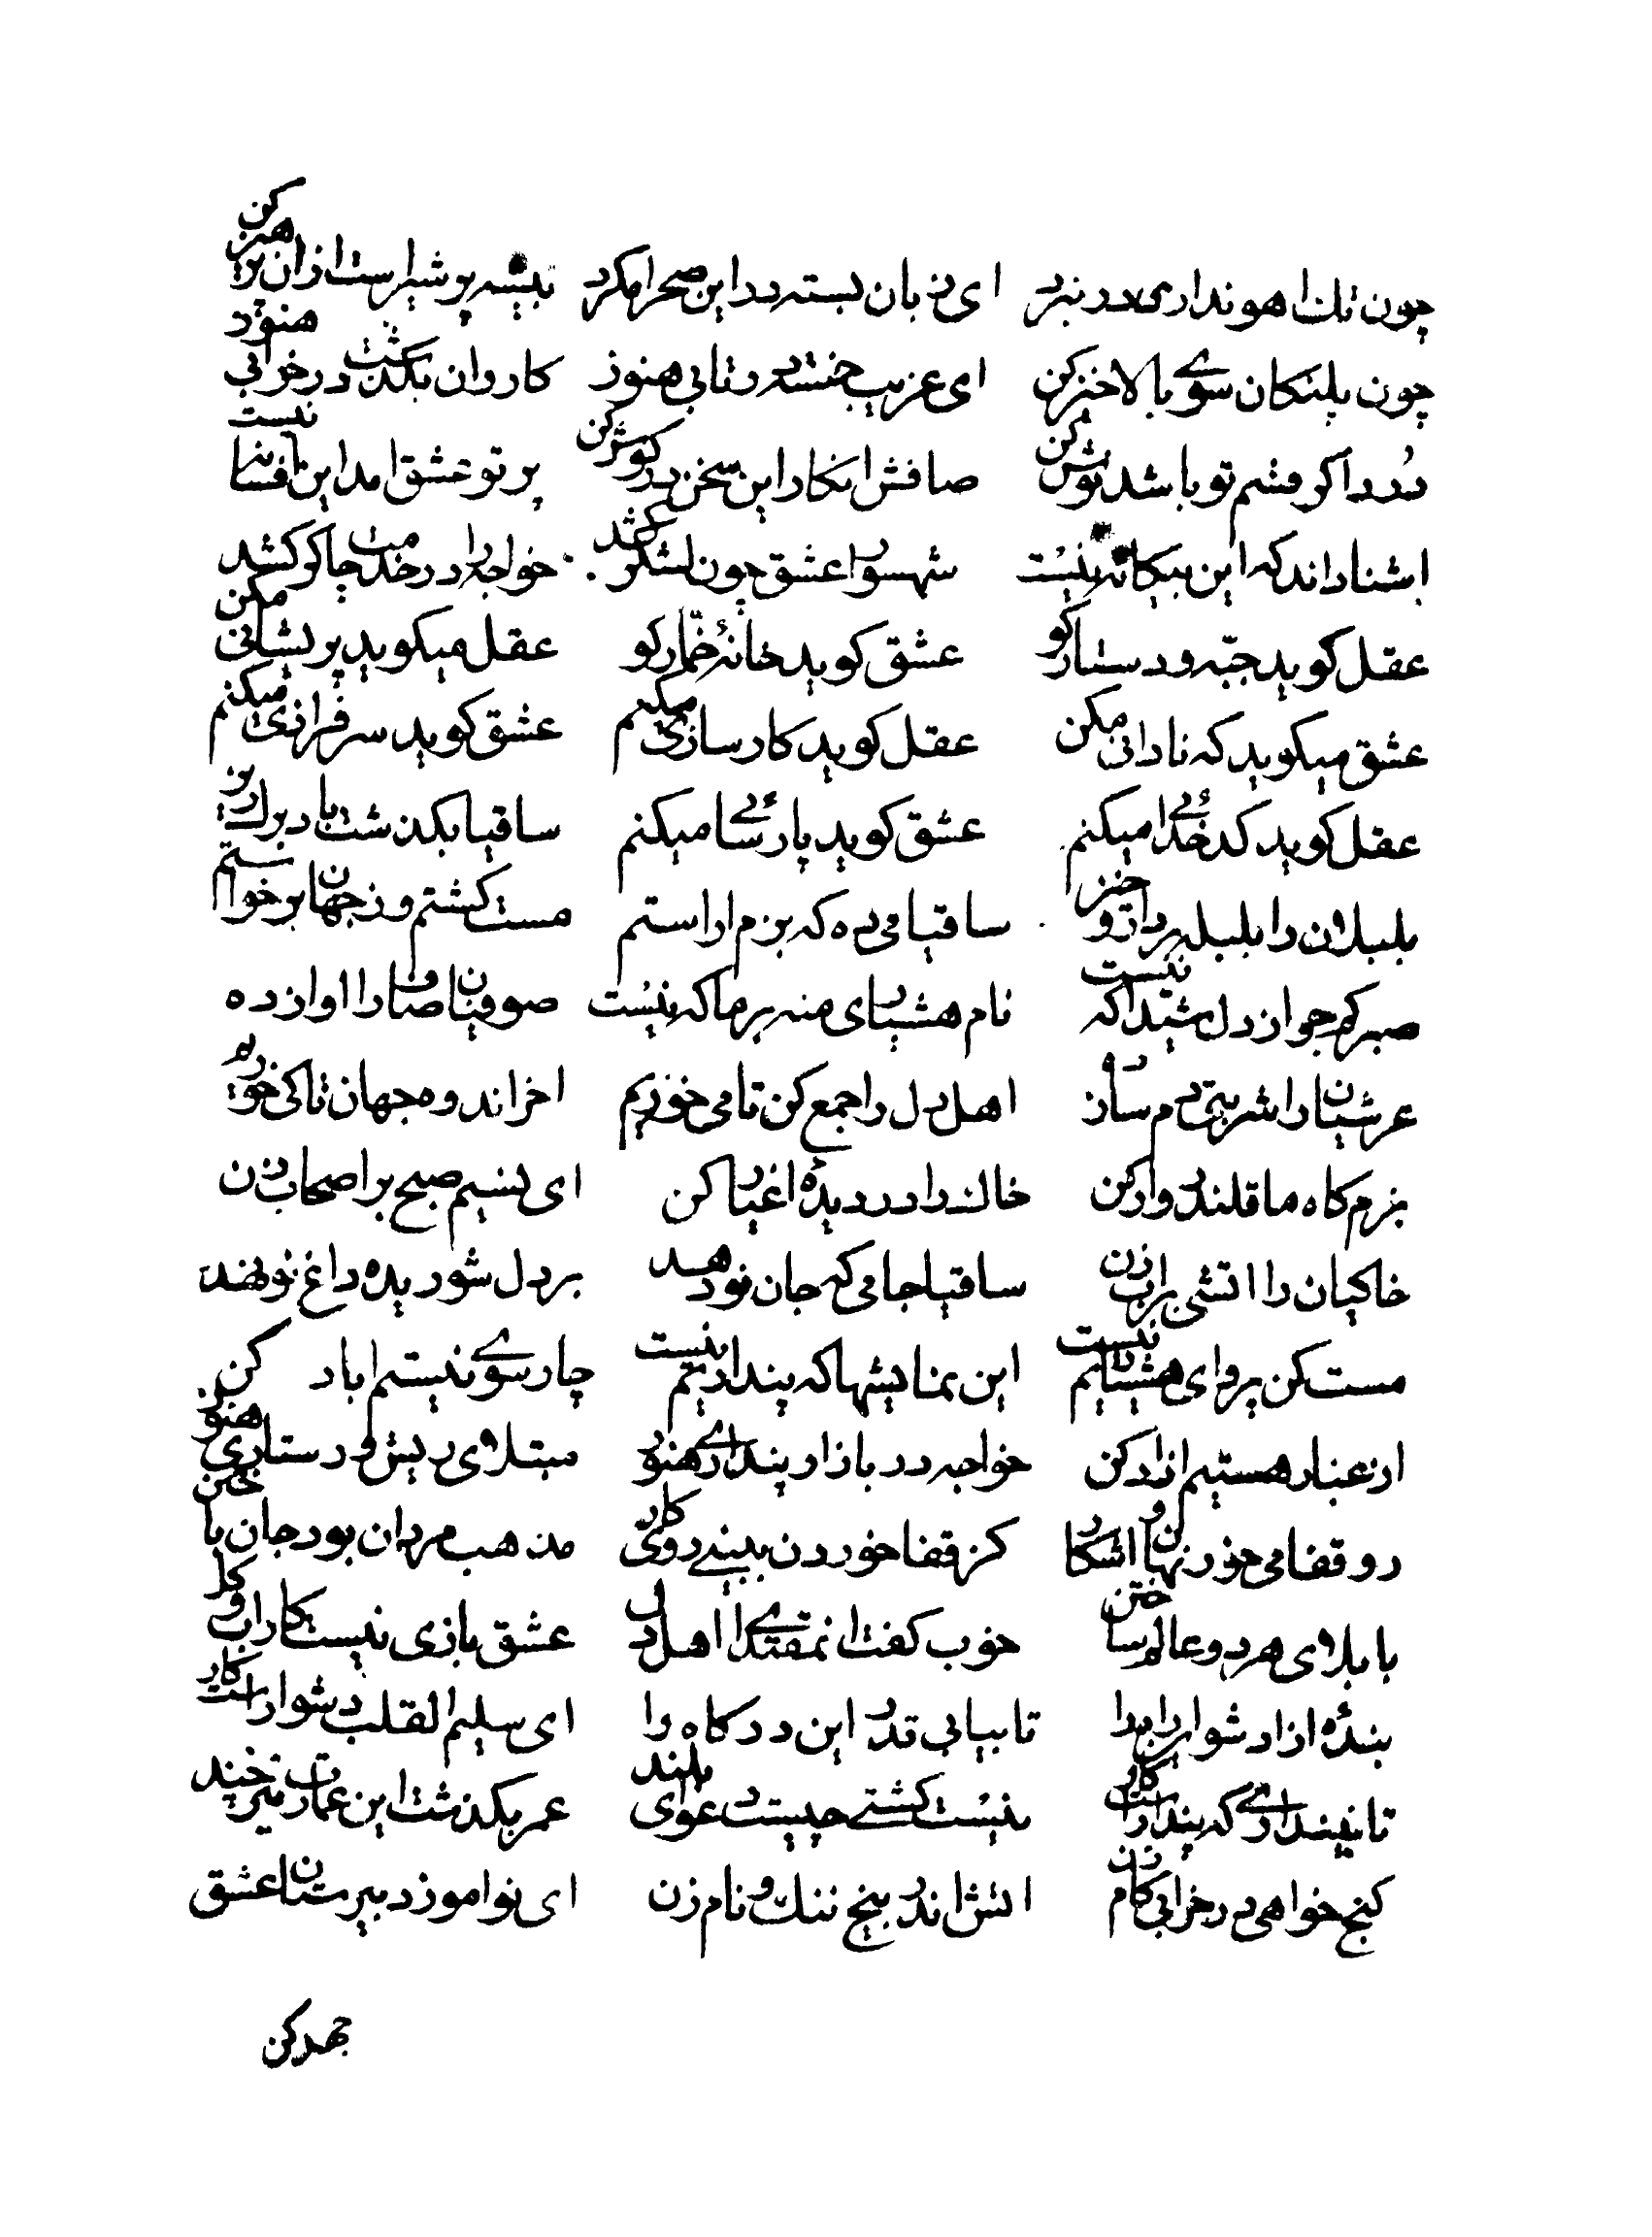 چون تك اهو نداری در نبرد ای زبان بسته در این صحرا مکرد بیشه پر شیر است ازان بر هنر کن
چون پلنکان سوی بالا خیز کن ای غریب خشت در تابی هنوز کاروان بکذشت در خرابی هنوز
درد اکر قسم تو باشد نوش کن صافش انکار این سخن در کوش کن پرتو عشق امد این افسانه نیست
اشنا داند که این بیکانه نیست شهسوار عشق چون لشکر کشد خواجه را در خدمت چاکر کشد
عقل کوید جبّه و دستار کو عشق کوید خانهٔ خمّار کو عقل میکوید پریشانی مکن
عشق میکوید که نادانی مکن عقل کوید کار سازی میکنم عشق کوید سر فرازی میکنم
عقل کوید کدخدائی میکنم عشق کوید پارسائی میکنم ساقیا بکذشت باد برك ریز
بلبلان را بلبله بردار و خیز ساقیا می ده که بزم اراستم مست کشتم وز جهان برخواستم
صبر کم جو از دل شیدا که نیست نام هشیاری منه بر ما که نیست صوفیان صاف را اواز ده
عرشیان را شربتی دم ساز ده اهل دل را جمع کن تا می خوریم اخر اندوه جهان تا کی خوریم
بزم کاه ما قلندر وار کن خاك را در دیدهٔ اغیار کن ای نسیم صبح بر اصحاب زن
خاکیان را اتشی بر اب زن ساقیا جامی که جان نو دهد بر دل شوریده داغ نو نهد
مست کن پروای هشیاریم نیست این نمایشها که پنداریم نیست چار سوی نیستم اباد کن
از غبار هستیم ازاد کن خواجه در بازار پنداری هنوز مبتلای ریش و دستاری هنوز
رو قفا می خور نهان و اشکار کز قفا خوردن ببینی روی کار مذهب مردان بود جان باختن
با بلای هر دو عالم ساختن خوب کفت ان مقتدای اهل دل عشق بازی نیست کار اب و کل
بندهٔ ازاد شو این راه را تا بیابی قدر این درکاه را ای سلیم القلب دشوار است کار
تا نپنداری که پندار است کار نیست کشتی چیست دعوای بلند عمر بکذشت این عمارت نیز چند
کنج خواهی در خرابی کام زن اتش اندر بیخ ننك و نام زن ای نواموز دبیرستان عشق
جهد کن